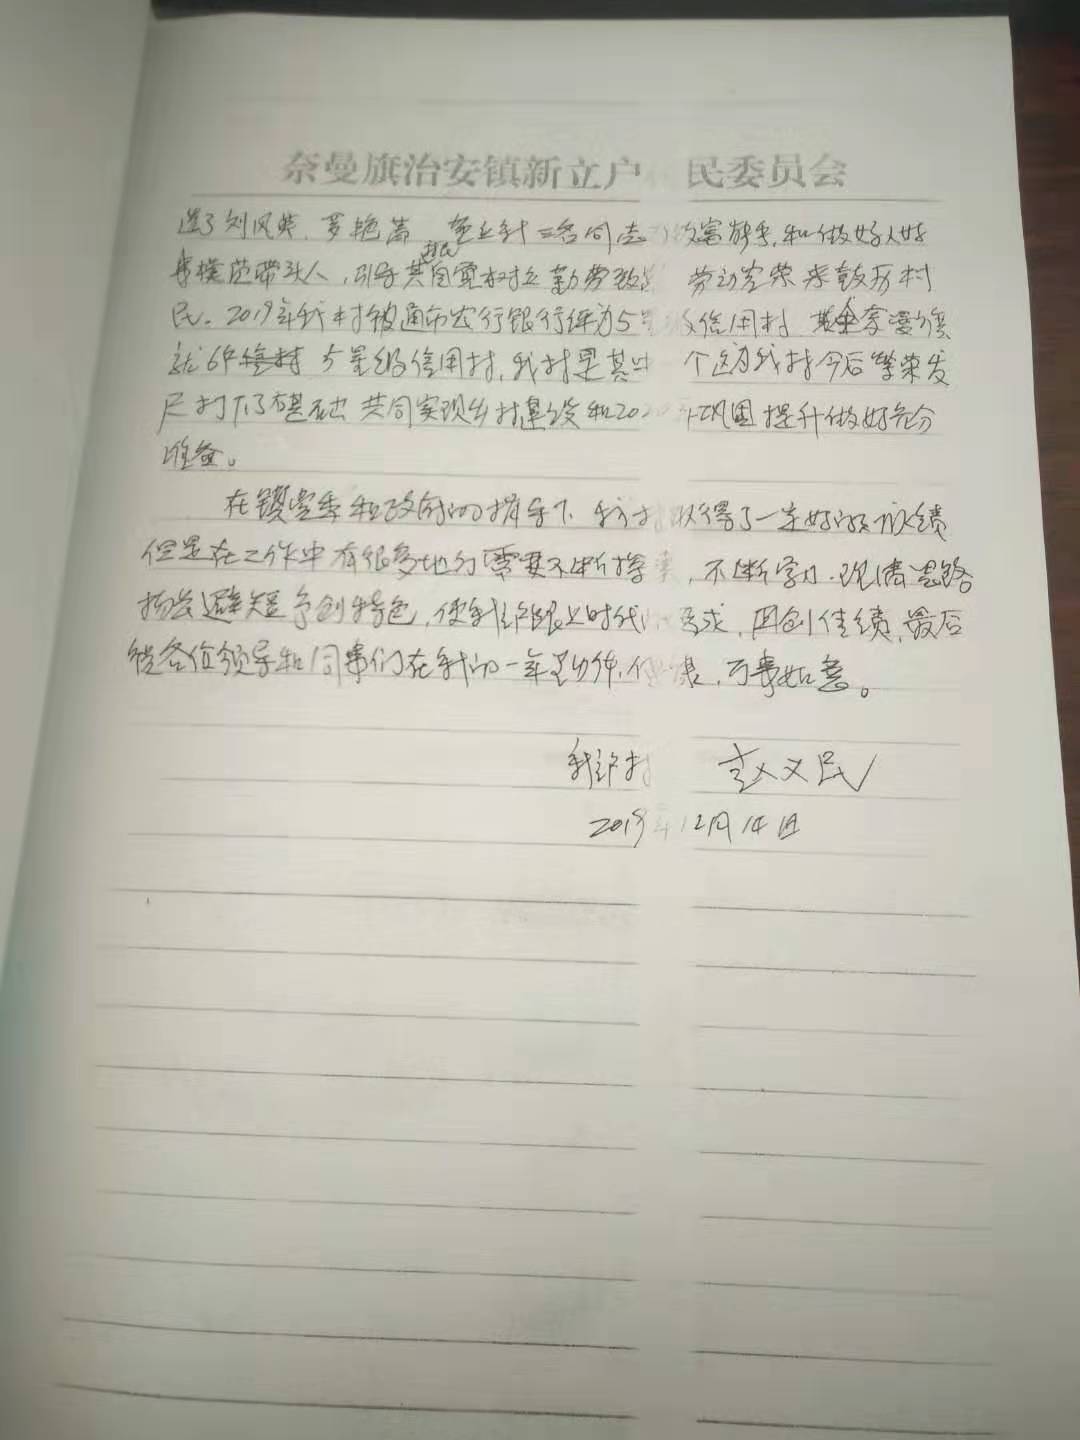 奈曼旗治安镇新立户 民委员会
选了刘凤英、罗艳 三名同志 致富能手,和做好人好
事模范带头人,引导其村民自觉树立勤劳致 劳动光荣来鼓励村
民。2019年我村被通市农行银行评为5星级信用村 奈曼旗
就6个 5星级信用村,我村是其中 个这为我村今后繁荣发
尺打下了基础 共同实现乡村建设和2020年巩固提升做好充分
准备。
在镇党委和政府的指导下 我村取得了一定好的成绩
但是在工作中有很多地方需要不断探索,不断学习.理清思路
扬长避短争创特色,使我 跟上时代 要求,再创佳绩,最后
祝各位领导和同事们在 的一年里身体.健康,万事如意。
村 赵文民
2019年12月14日